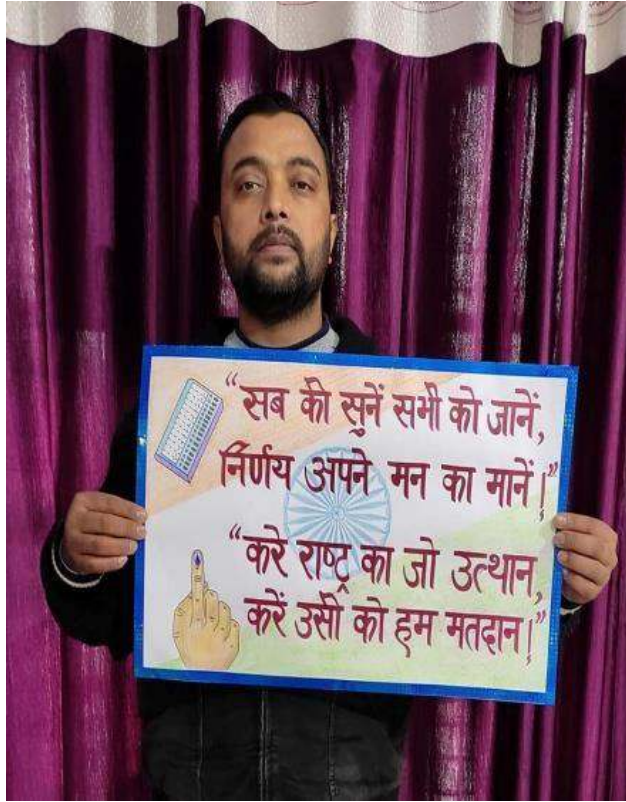 “सब की सुनें सभी को जानें,
निर्णय अपने मन का मानें!”
“करे राष्ट्र का जो उत्थान,
करें उसी को हम मतदान!”